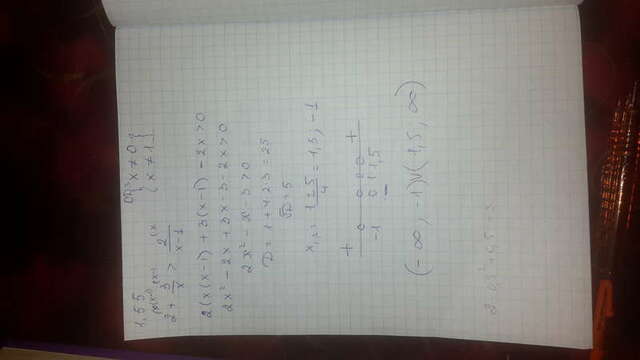 1,55 ОДЗ { x ≠ 0
{ x ≠ 1
2 + 3/x > 2/x-1
2(x(x-1)+3(x-1)-2x>0
2x²-2x+3x-3-2x>0
2x²-x-3>0
D=1+4·2·3=25
√D=5
x₁,₂= 1±5/4 =1,5; -1
+ +
-1 0 1 1,5
-
(-∞, -1)∪(1,5, ∞)